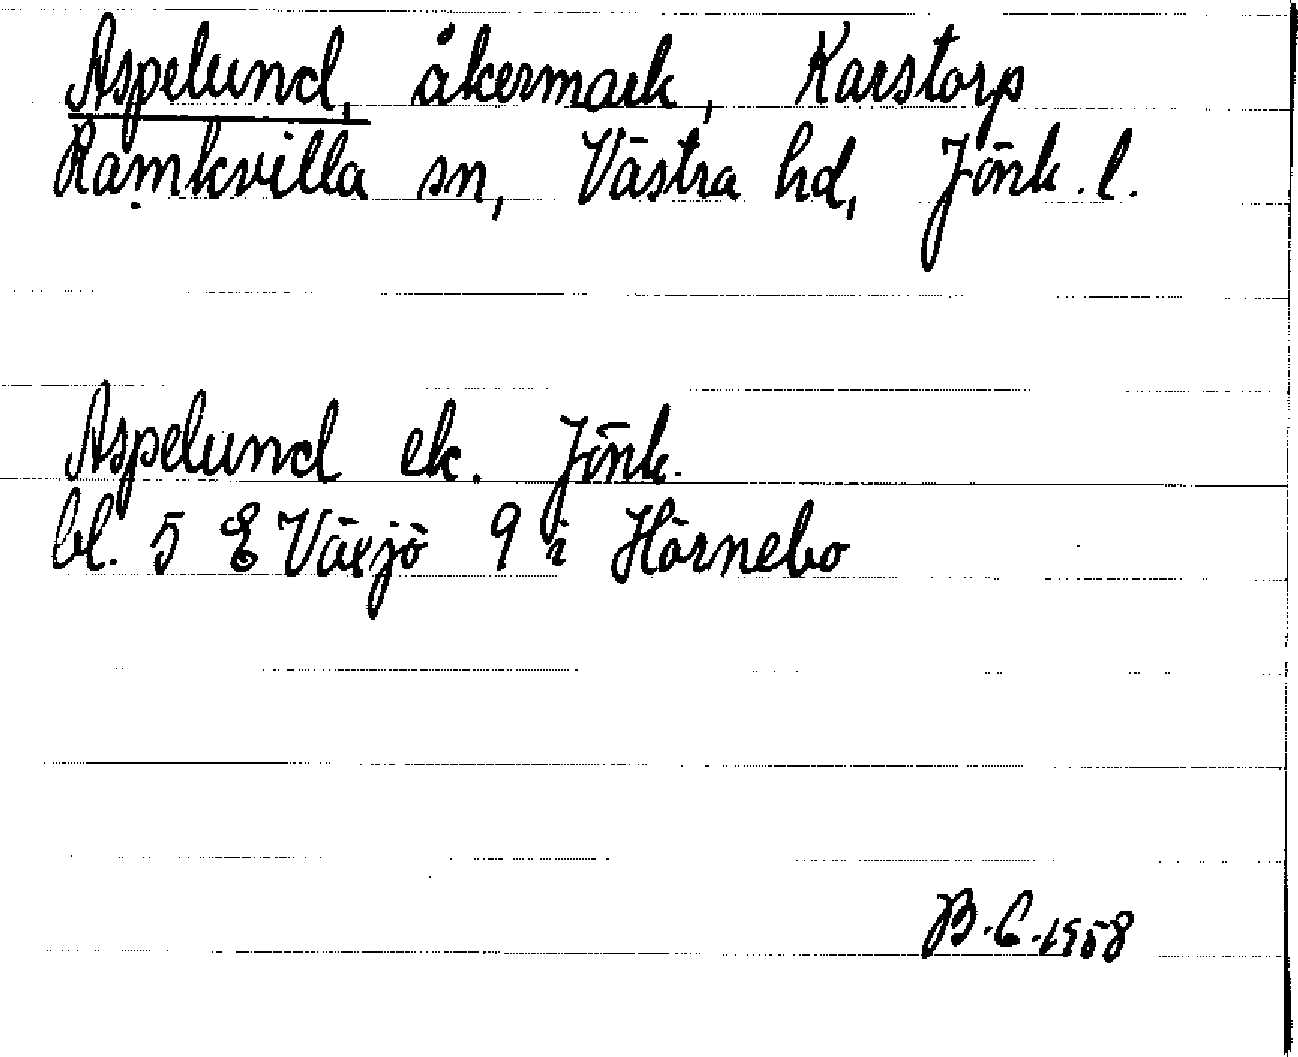 Aspelund, åkermark, Karstorp
Ramkvilla sn, Västra hd, Jönk. l.
Aspelund ek. Jönk.
bl. 5 E Växjö 9 i Hörnebo
B.C. 1958